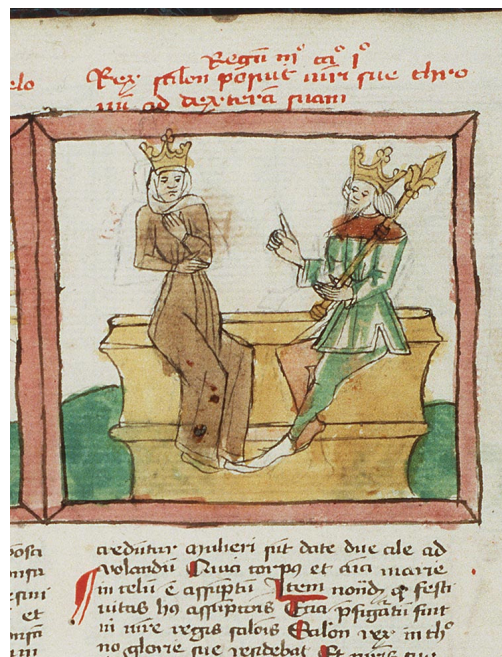 Regū iii° ca° i°
Rex salon posuit mri sue thro
nū ad dexterā suam
elo
et
credūtur mulieri sūt date due ale ad
volandū Quia corpꝰ et aīa marie
in celū ē assūptū Item festi
uitas hꝰ assūptōis Etiā pfigātū fuit
in mre regis salōis Salon rex in th°
no glorie sue residebat Et